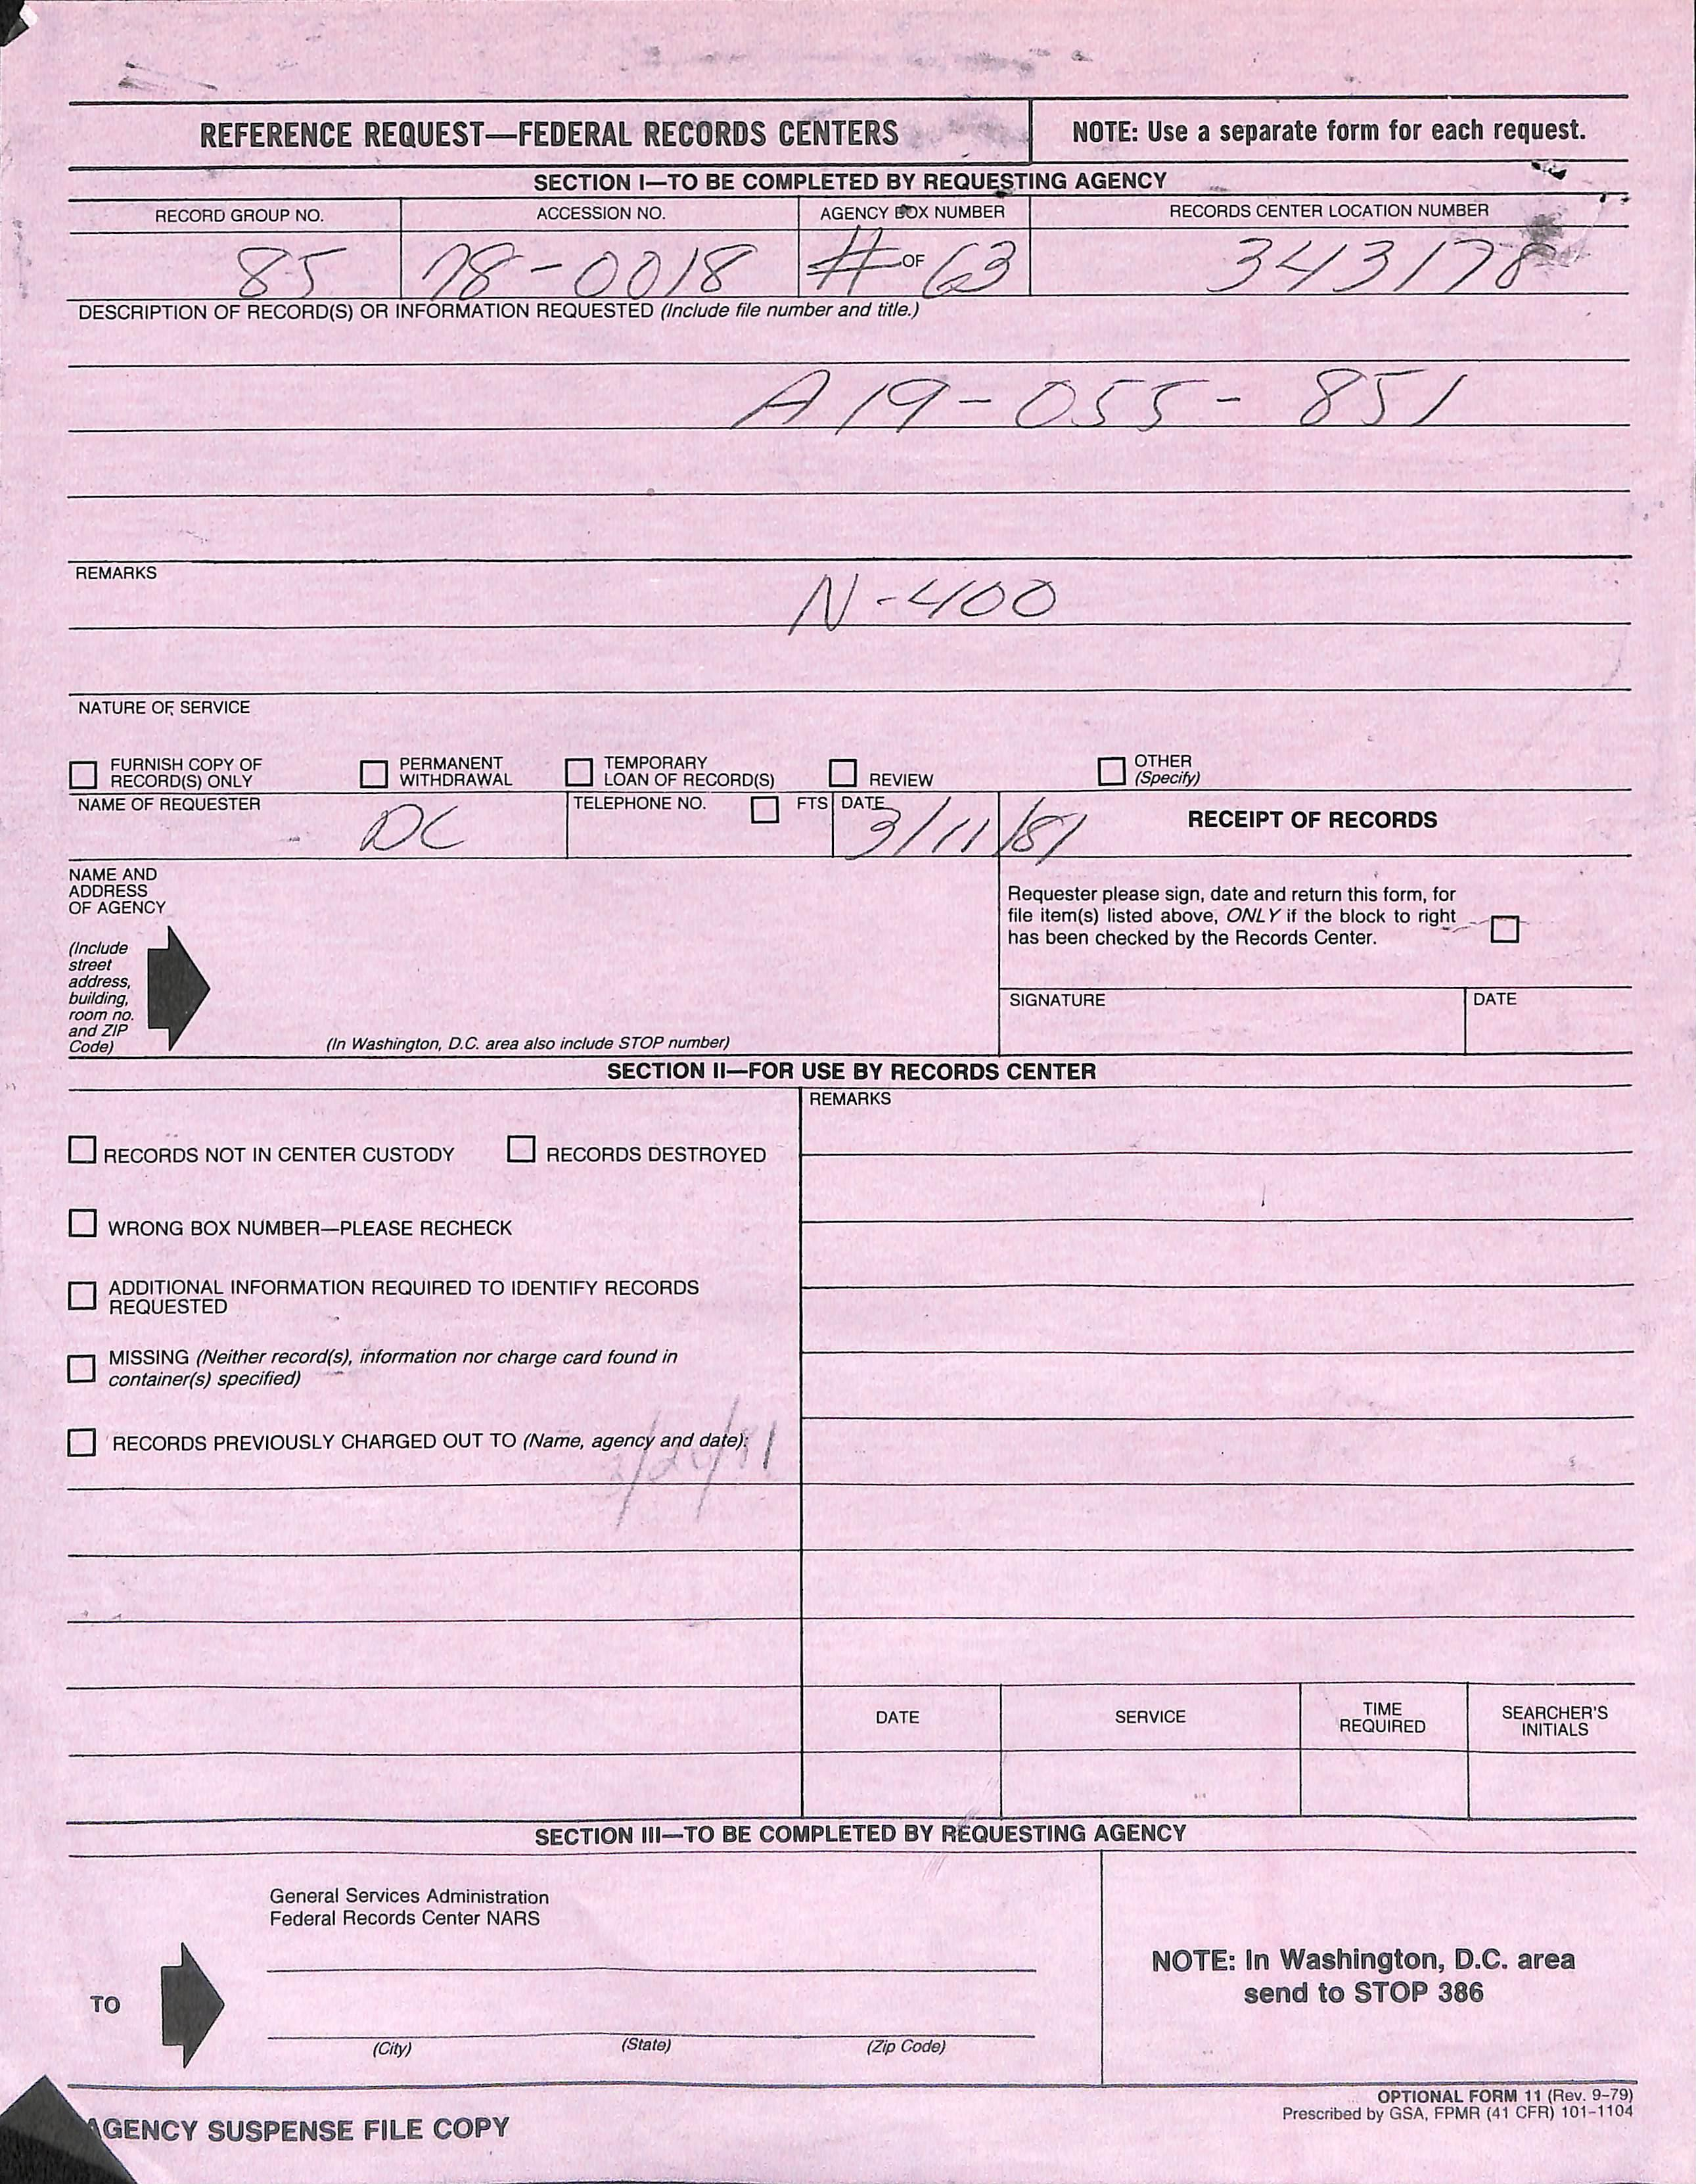 REFERENCE REQUEST—FEDERAL RECORDS CENTERS
NOTE: Use a separate form for each request.
SECTION I—TO BE COMPLETED BY REQUESTING AGENCY
RECORD GROUP NO.
ACCESSION NO.
AGENCY BOX NUMBER
RECORDS CENTER LOCATION NUMBER
85
78-0018
# OF 63
343178
DESCRIPTION OF RECORD(S) OR INFORMATION REQUESTED (Include file number and title.)
A19-055-851
REMARKS
N-400
NATURE OF SERVICE
FURNISH COPY OF
RECORD(S) ONLY
PERMANENT
WITHDRAWAL
TEMPORARY
LOAN OF RECORD(S)
REVIEW
OTHER
(Specify)
NAME OF REQUESTER
DC
TELEPHONE NO.
FTS
DATE
3/11/81
RECEIPT OF RECORDS
NAME AND
ADDRESS
OF AGENCY
(Include
street
address,
building,
room no.
and ZIP
Code)
(In Washington, D.C. area also include STOP number)
Requester please sign, date and return this form, for
file item(s) listed above, ONLY if the block to right
has been checked by the Records Center.
SIGNATURE
DATE
SECTION II—FOR USE BY RECORDS CENTER
RECORDS NOT IN CENTER CUSTODY
RECORDS DESTROYED
WRONG BOX NUMBER—PLEASE RECHECK
ADDITIONAL INFORMATION REQUIRED TO IDENTIFY RECORDS
REQUESTED
MISSING (Neither record(s), information nor charge card found in
container(s) specified)
RECORDS PREVIOUSLY CHARGED OUT TO (Name, agency and date):
REMARKS
DATE
SERVICE
TIME
REQUIRED
SEARCHER'S
INITIALS
SECTION III—TO BE COMPLETED BY REQUESTING AGENCY
General Services Administration
Federal Records Center NARS
TO
(City)
(State)
(Zip Code)
NOTE: In Washington, D.C. area
send to STOP 386
OPTIONAL FORM 11 (Rev. 9-79)
Prescribed by GSA, FPMR (41 CFR) 101-1104
AGENCY SUSPENSE FILE COPY